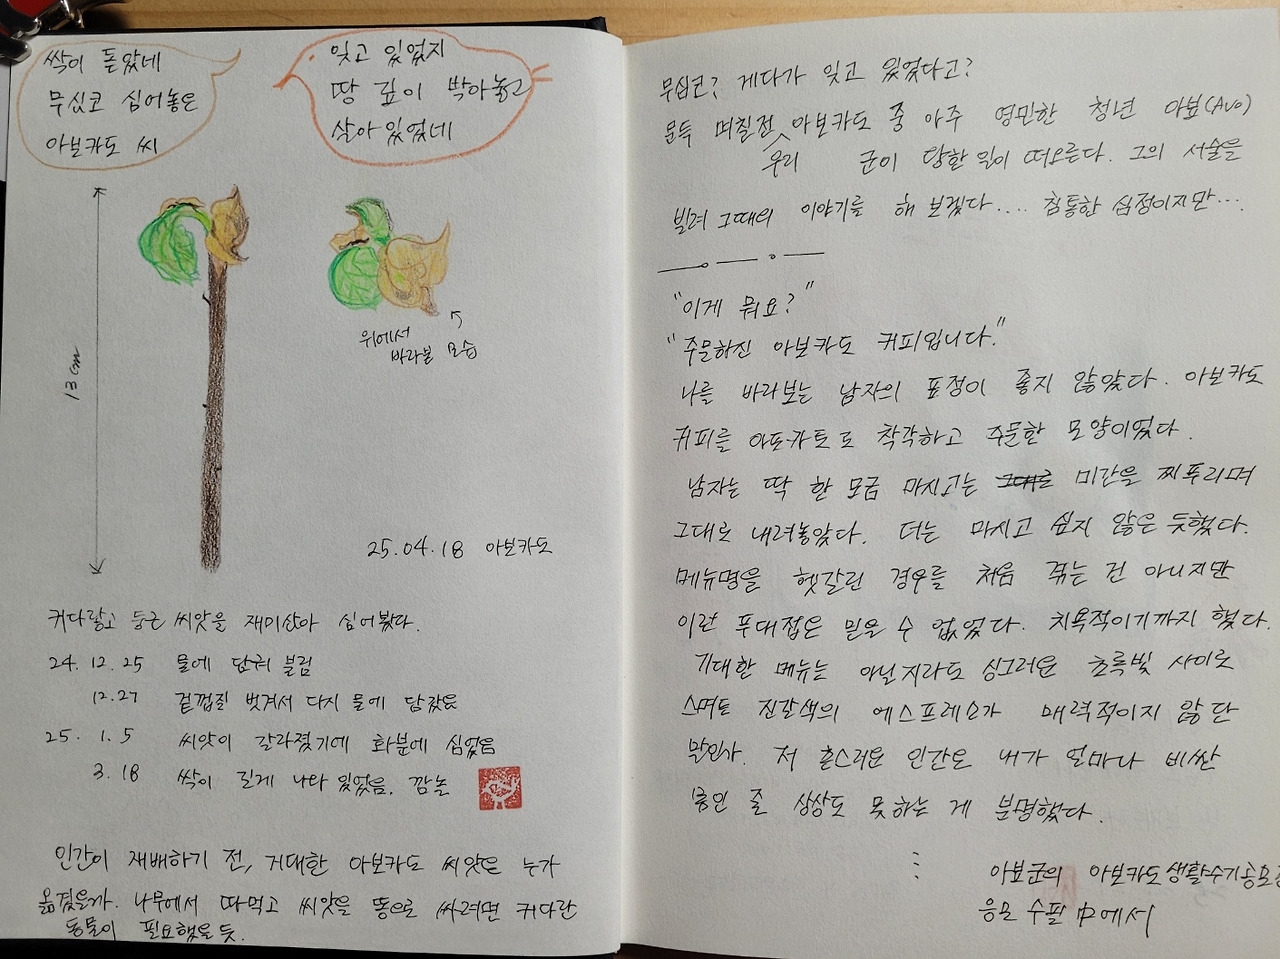 싹이 돋았네
무심코 심어놓은
아보카도 씨
잊고 있었지
땅 깊이 박아놓고
살아 있었네
13cm
위에서
바라본 모습
25.04.18 아보카도
커다랗고 둥근 씨앗을 재미삼아 심어봤다.
24. 12. 25 물에 담궈 불림
12.27 겉껍질 벗겨서 다시 물에 담갔음
25. 1. 5 씨앗이 갈라졌기에 화분에 심었음
3. 18 싹이 길게 나와 있었음. 깜놀
인간이 재배하기 전, 거대한 아보카도 씨앗은 누가
옮겼을까. 나무에서 따먹고 씨앗을 똥으로 싸려면 커다란
동물이 필요했을 듯.
무심코? 게다가 잊고 있었다고?
문득 며칠전 우리 아보카도 중 아주 영민한 청년 아보(Avo)
군이 당한 일이 떠오른다. 그의 서술을
빌려 그때의 이야기를 해 보겠다.... 침통한 심정이지만...
"이게 뭐요?"
"주문하신 아보카도 커피입니다."
나를 바라보는 남자의 표정이 좋지 않았다. 아보카도
커피를 아포카토로 착각하고 주문한 모양이었다.
남자는 딱 한 모금 마시고는 그대로 미간을 찌푸리며
그대로 내려놓았다. 더는 마시고 싶지 않은 듯했다.
메뉴명을 헷갈린 경우를 처음 겪는 건 아니지만
이런 푸대접은 믿을 수 없었다. 치욕적이기까지 했다.
기대한 메뉴는 아닐지라도 싱그러운 초록빛 사이로
스며든 진갈색의 에스프레소가 매력적이지 않단
말인가. 저 촌스러운 인간은 내가 얼마나 비싼
몸인 줄 상상도 못하는 게 분명했다.
아보군의 아보카도생활수기공모전
응모 수필 中에서